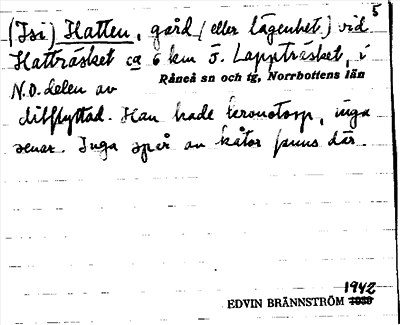 5
(I si) Hatten, gård (eller lägenhet) vid
Hatträsket ca 6 km Ö. Lappträsket, i
N.O. delen av Råneå sn och tg, Norrbottens län
ditflyttad. Han hade kronotorp, inga
renar. Inga spår av kåtor finns där.
1942
EDVIN BRÄNNSTRÖM